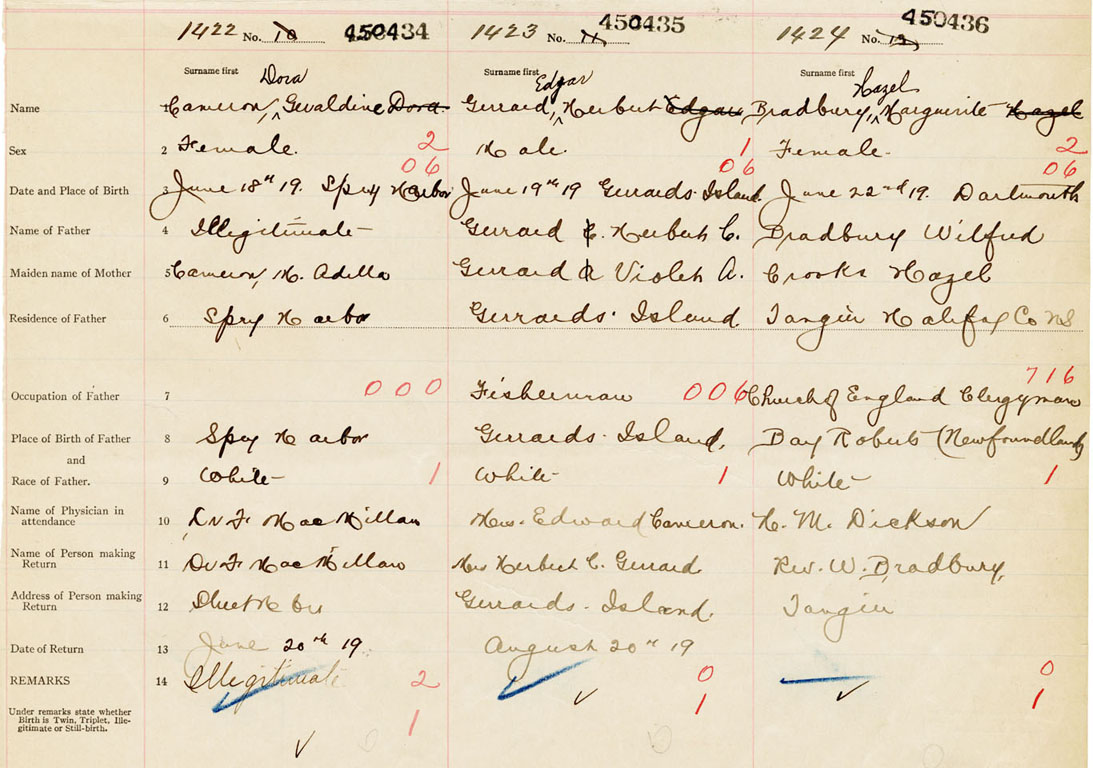 1422 No. 10 450434 1423 No. 11 450435 1424 No. 12 450436
Surname first Dora Surname first Edgar Surname first Hazel
Name 1 Cameron, Geraldine Dora Gerrard, Herbert Edgar Bradbury, Marguerite Hazel
Sex 2 Female. 2 Male. 1 Female. 2
06 06 06
Date and Place of Birth 3 June 18th 19. Spry Harbor June 19th 19 Gerrards Island June 22nd 19. Dartmouth
Name of Father 4 Illegitimate Gerrard Herbert C. Bradbury Wilfred
Maiden name of Mother 5 Cameron, M. Adella Gerrard Violet A. Crooks Hazel
Residence of Father 6 Spry Harbor Gerrards Island. Tangier Halifax Co NS
716
Occupation of Father 7 000 Fisherman 006 Church of England Clergyman
Place of Birth of Father 8 Spry Harbor Gerrards Island, Bay Roberts (Newfoundland)
and
Race of Father. 9 White 1 White 1 White 1
Name of Physician in
attendance 10 Dr F. MacMillan Mrs. Edward Cameron. H. M. Dickson
Name of Person making
Return 11 Dr F MacMillan Mrs Herbert C. Gerrard Rev. W. Bradbury,
Address of Person making
Return 12 Sheet Hbr Gerrards Island. Tangier
Date of Return 13 June 20th 19. August 20th 19
REMARKS 14 Illegitimate 2 0 0
Under remarks state whether
Birth is Twin, Triplet, Ille-
gitimate or Still-birth. 1 1 1